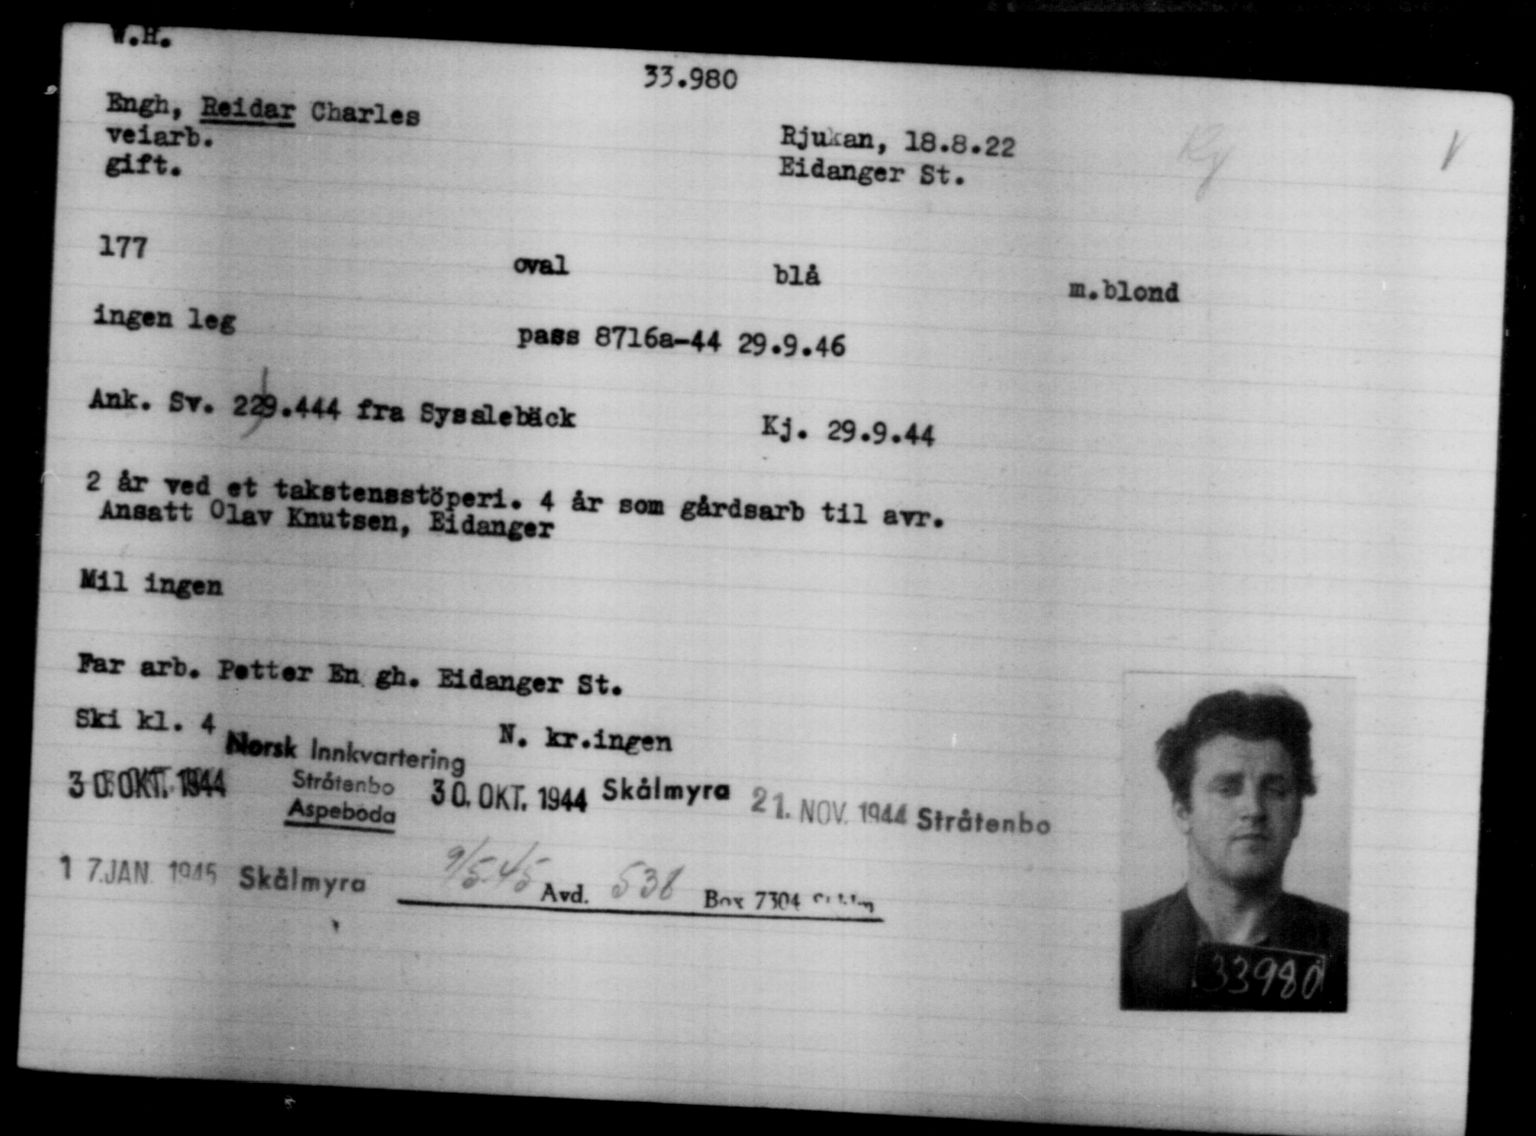 W.H.
33.980
Engh, Reidar Charles
veiarb.
gift.
Rjukan, 18.8.22
Eidanger St.
177 oval blå m.blond
ingen leg pass 8716a-44 29.9.46
Ank. Sv. 229.444 fra Sysslebäck Kj. 29.9.44
2 år ved et takstensstöperi. 4 år som gårdsarb til avr.
Ansatt Olav Knutsen, Eidanger
Mil ingen
Far arb. Petter En gh. Eidanger St.
Ski kl. 4 N. kr.ingen
Norsk Innkvartering
Stråtenbo
Aspeboda
30 OKT. 1944
30. OKT. 1944 Skålmyra 21. NOV. 1944 Stråtenbo
17. JAN. 1945 Skålmyra 9/5.45 Avd. 538 Box 7304
33980